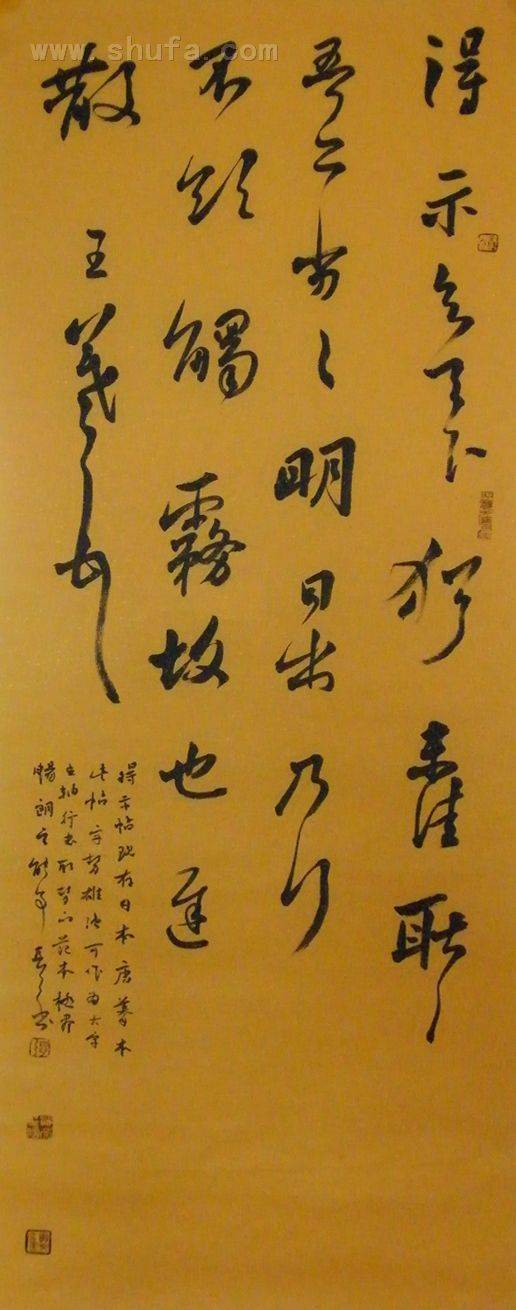 www.shufa.com
得示知足下猶未佳耿耿
吾亦劣劣明日出乃行
不欲觸霧故也遲
散
王羲之頓首
得示帖現存日本唐摹本
此帖字勢雄強可作為大字
立軸行書取勢之範本極盡
暢朗之能事 書